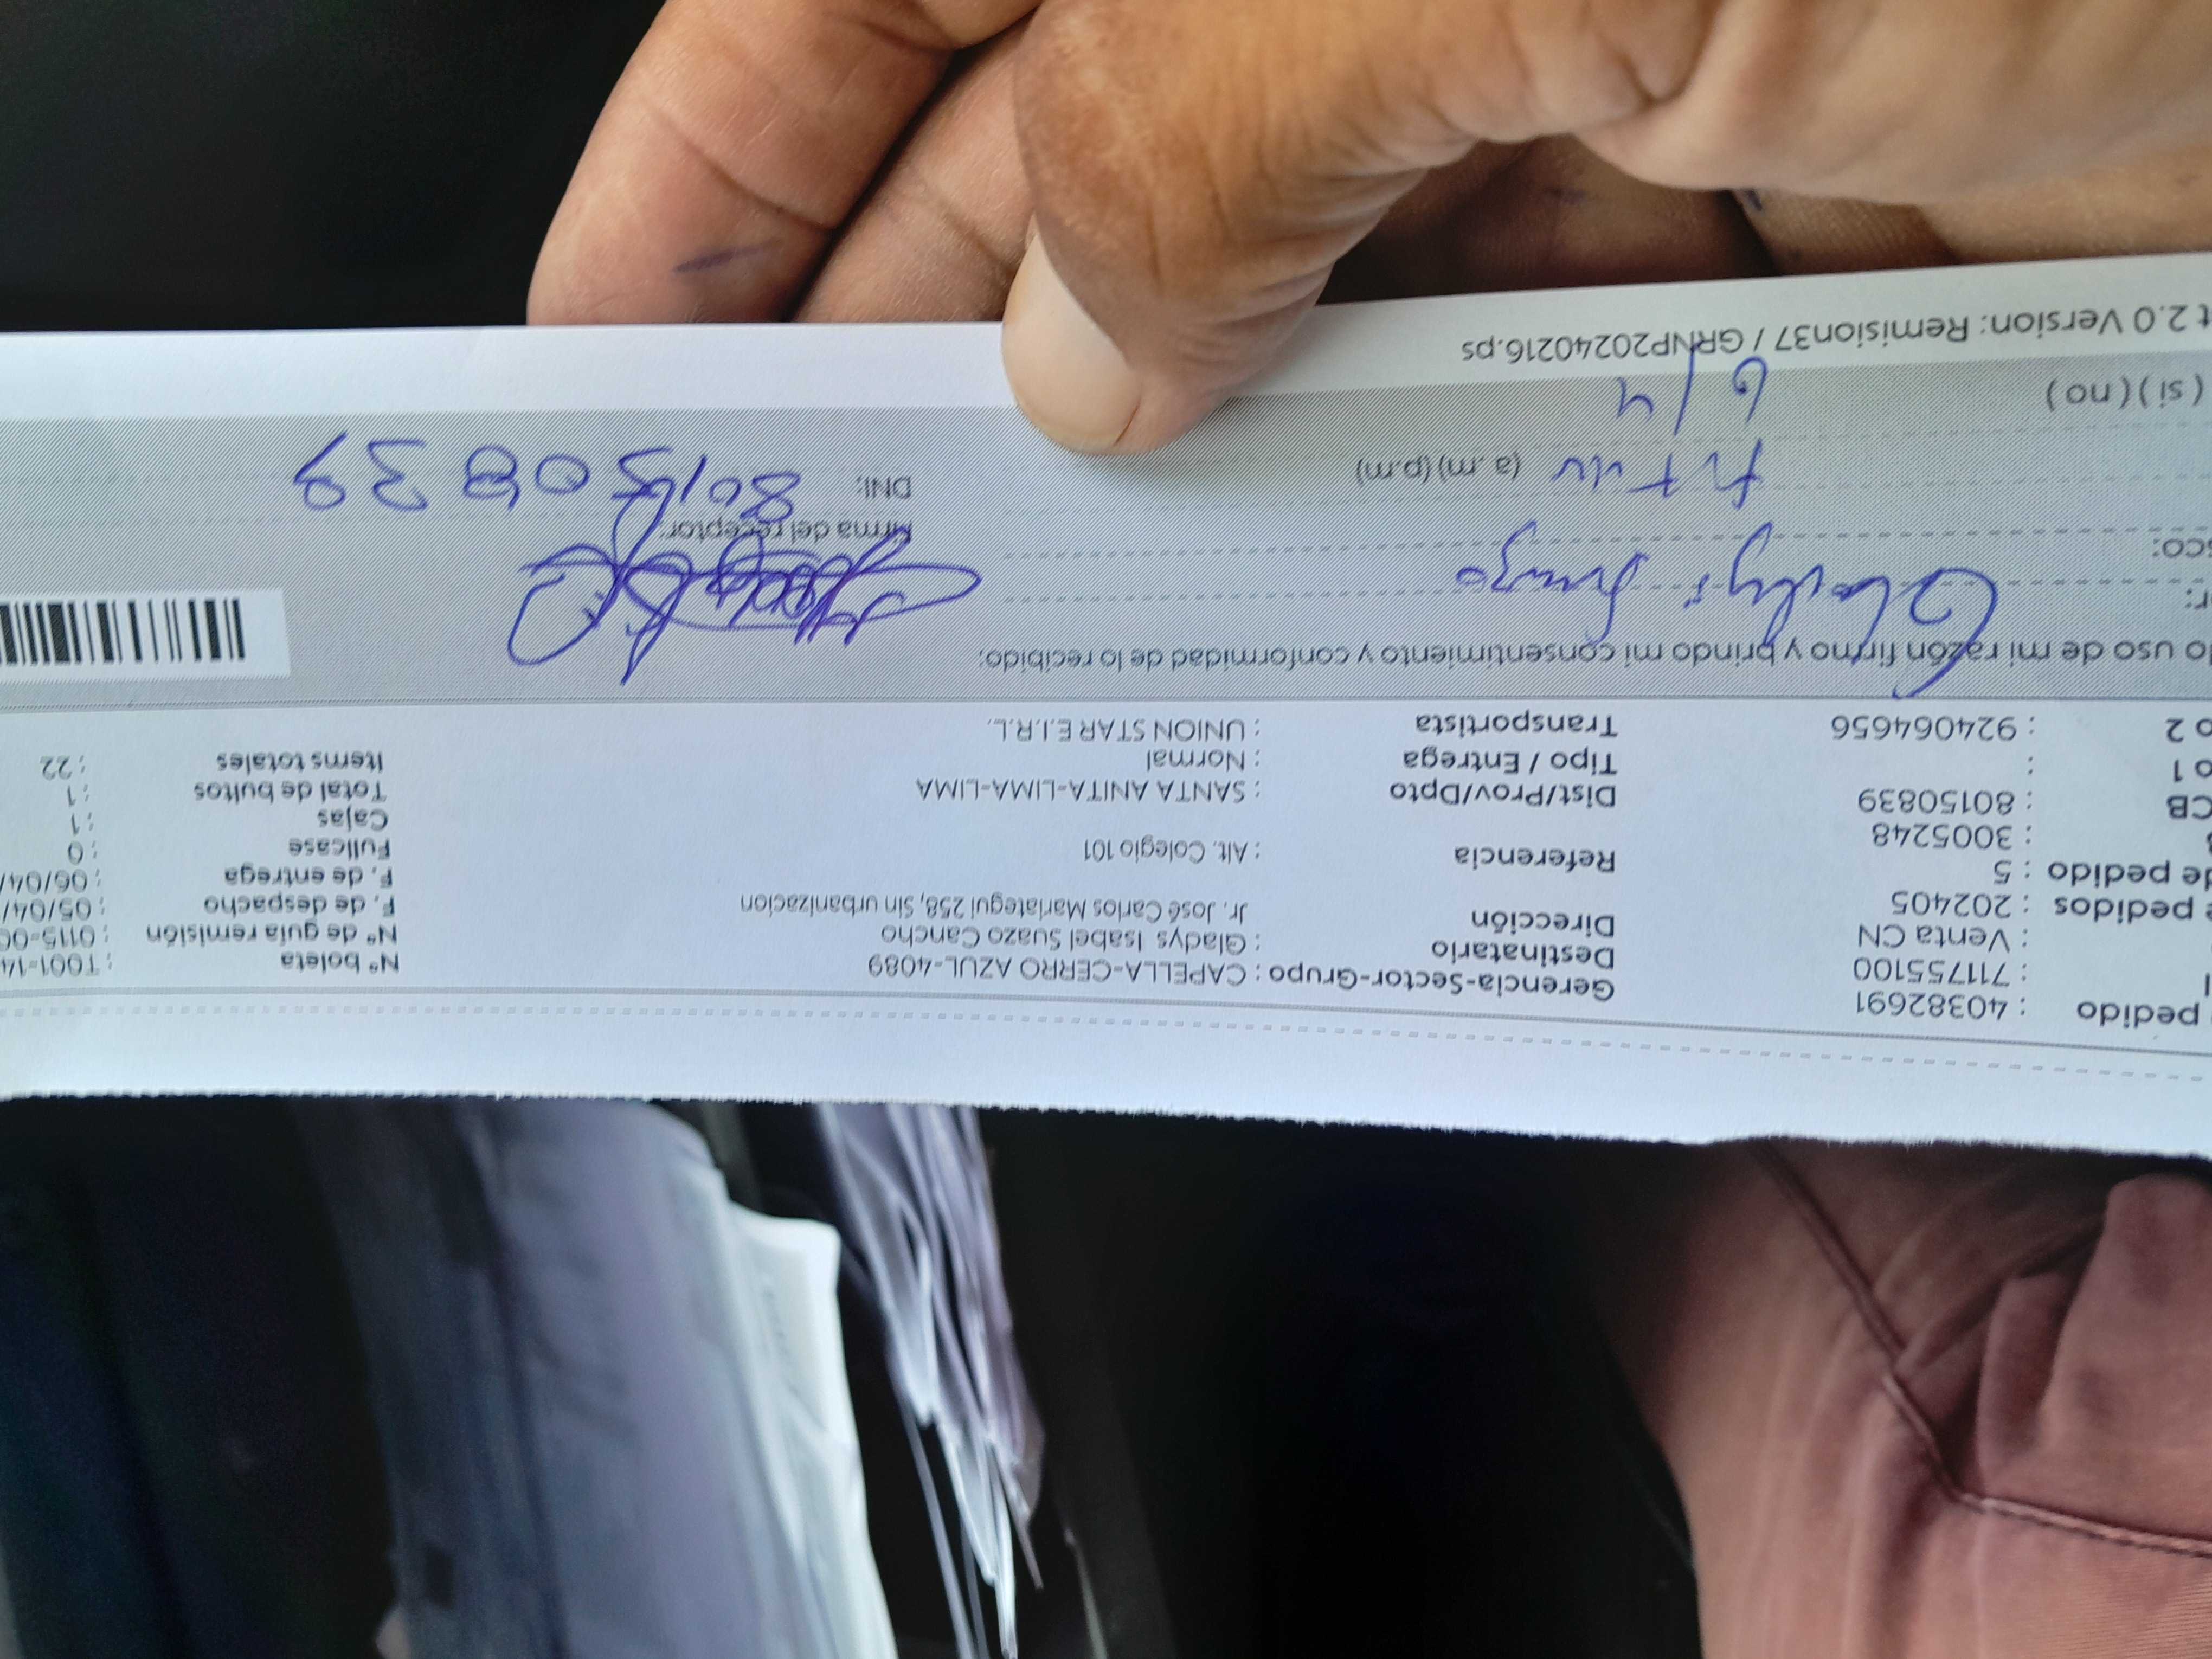 pedido : 40382691
: 711755100
: Venta CN
pedidos : 202405
de pedido : 5
: 3005248
CB : 80150839
o 1 :
o 2 : 924064656
Gerencia-Sector-Grupo : CAPELLA-CERRO AZUL-4089
Destinatario : Gladys Isabel Suazo Cancho
Dirección Jr. José Carlos Mariategui 258, Sin urbanizacion
Referencia : Alt. Colegio 101
Dist/Prov/Dpto : SANTA ANITA-LIMA-LIMA
Tipo / Entrega : Normal
Transportista : UNION STAR E.I.R.L.
Nº boleta : T001-14
Nº de guía remisión : 0115-00
F. de despacho : 05/04/
F. de entrega : 06/04/
Fullcase : 0
Cajas : 1
Total de bultos : 1
Items totales : 22
o uso de mi razón firmo y brindo mi consentimiento y conformidad de lo recibido:
r: Gladys Suazo
sco:
(a.m) (p.m)
Firma del receptor:
DNI: 80150839
( si ) ( no ) 6/4
t 2.0 Version: Remision37 / GRNP20240216.ps